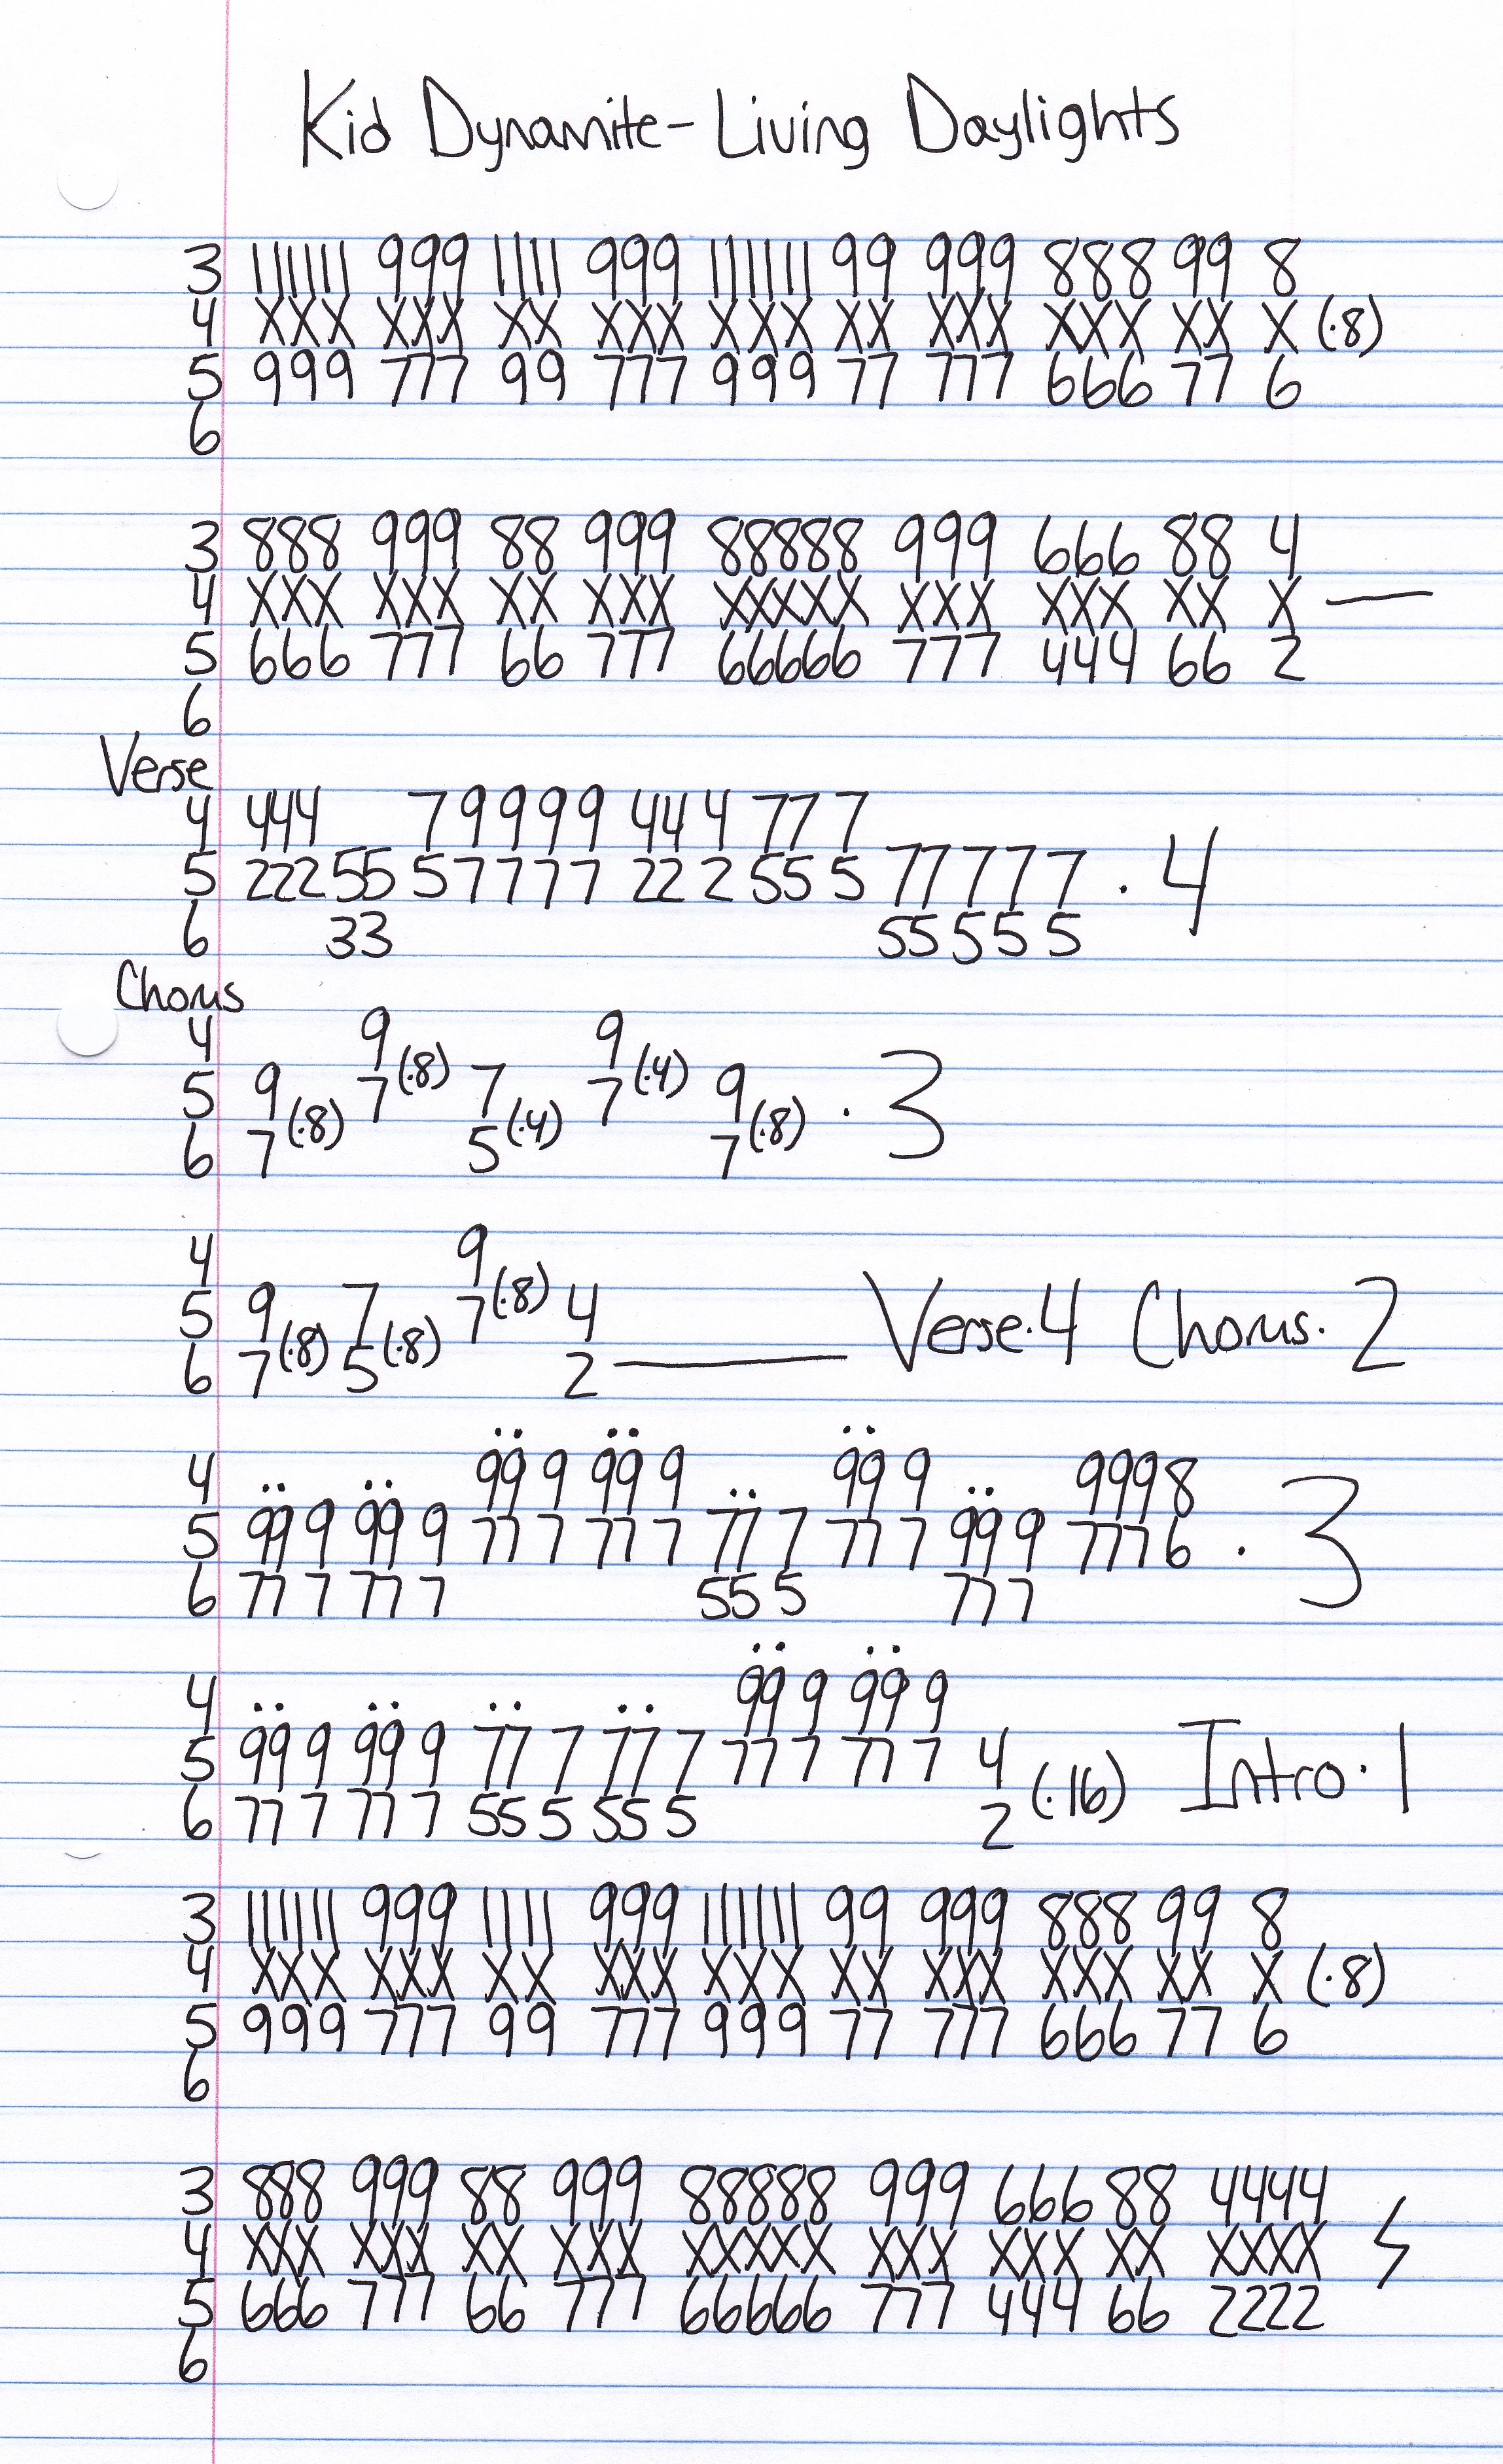 Kid Dynamite - Living Daylights
3 111111 999 1111 999 111111 99 999 888 99 8
4 XXX XXX XX XXX XXX XX XXX XXX XX X (·8)
5 999 777 99 777 999 77 777 666 77 6
6
3 888 999 88 999 88888 999 666 88 4
4 XXX XXX XX XXX XXXXX XXX XXX XX X —
5 666 777 66 777 66666 777 444 66 2
6
Verse
4 444 7 9 9 9 9 44 4 77 7
5 222 55 5 7 7 7 7 22 2 55 5 77 7 7 7 · 4
6 33 55 5 5 5
Chorus
4 9 9
5 9 7 (·8) 7 7 (·4) 9 · 3
6 7 (·8) 5 (·4) 7 (·8)
4 9
5 9 7 7 (·8) 4 Verse·4 Chorus·2
6 7 (·8) 5 (·8) 2 —
4 99 9 99 9 99 9 9998
5 99 9 99 9 77 7 77 7 77 7 77 7 99 9 7776 · 3
6 77 7 77 7 55 5 77 7
4 99 9 99 9
5 99 9 99 9 77 7 77 7 77 7 77 7 4 Intro·1
6 77 7 77 7 55 5 55 5 2 (·16)
3 111111 999 1111 999 111111 99 999 888 99 8
4 XXX XXX XX XXX XXX XX XXX XXX XX X (·8)
5 999 777 99 777 999 77 777 666 77 6
6
3 888 999 88 999 88888 999 666 88 4444
4 XXX XXX XX XXX XXXXX XXX XXX XX XXXX
5 666 777 66 777 66666 777 444 66 2222
6